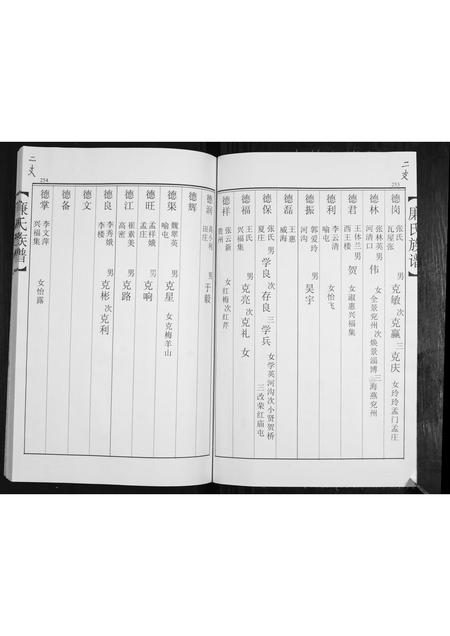 【廉氏族谱】
二支
253
德岗 张氏 瓦屋张 男 克敏 次 克赢 三 克庆 女 玲玲孟门孟庄
德林 张林英 河清口 男 伟 女 全景兖州 次 焕景淄博 三 海燕兖州
德君 王体兰 西王楼 男 贺 女 淑惠兴福集
德利 李云清 喻屯 女 怡飞
德振 郭爱玲 河沟 男 昊宇
德磊 王惠 威海
德保 张氏 夏庄 男 学良 次 存良 三 学兵 女 学英河沟 次 小贤贺桥 三 改荣红庙屯
德福 王氏 兴福集 男 克亮 次 克礼 女
德祥 张云新 贵州 女 红梅 次 红芹
二支
254
【廉氏族谱】
德润 田庄 男 于毅
德辉
德渠 魏翠英 喻屯 男 克星 女 克梅羊山
德旺 孟祥娥 孟庄 男 克响
德江 崔素美 高密 男 克路
德良 李秀娥 李楼 男 克彬 次 克利
德文
德备
德掌 李文萍 兴福集 女 怡露